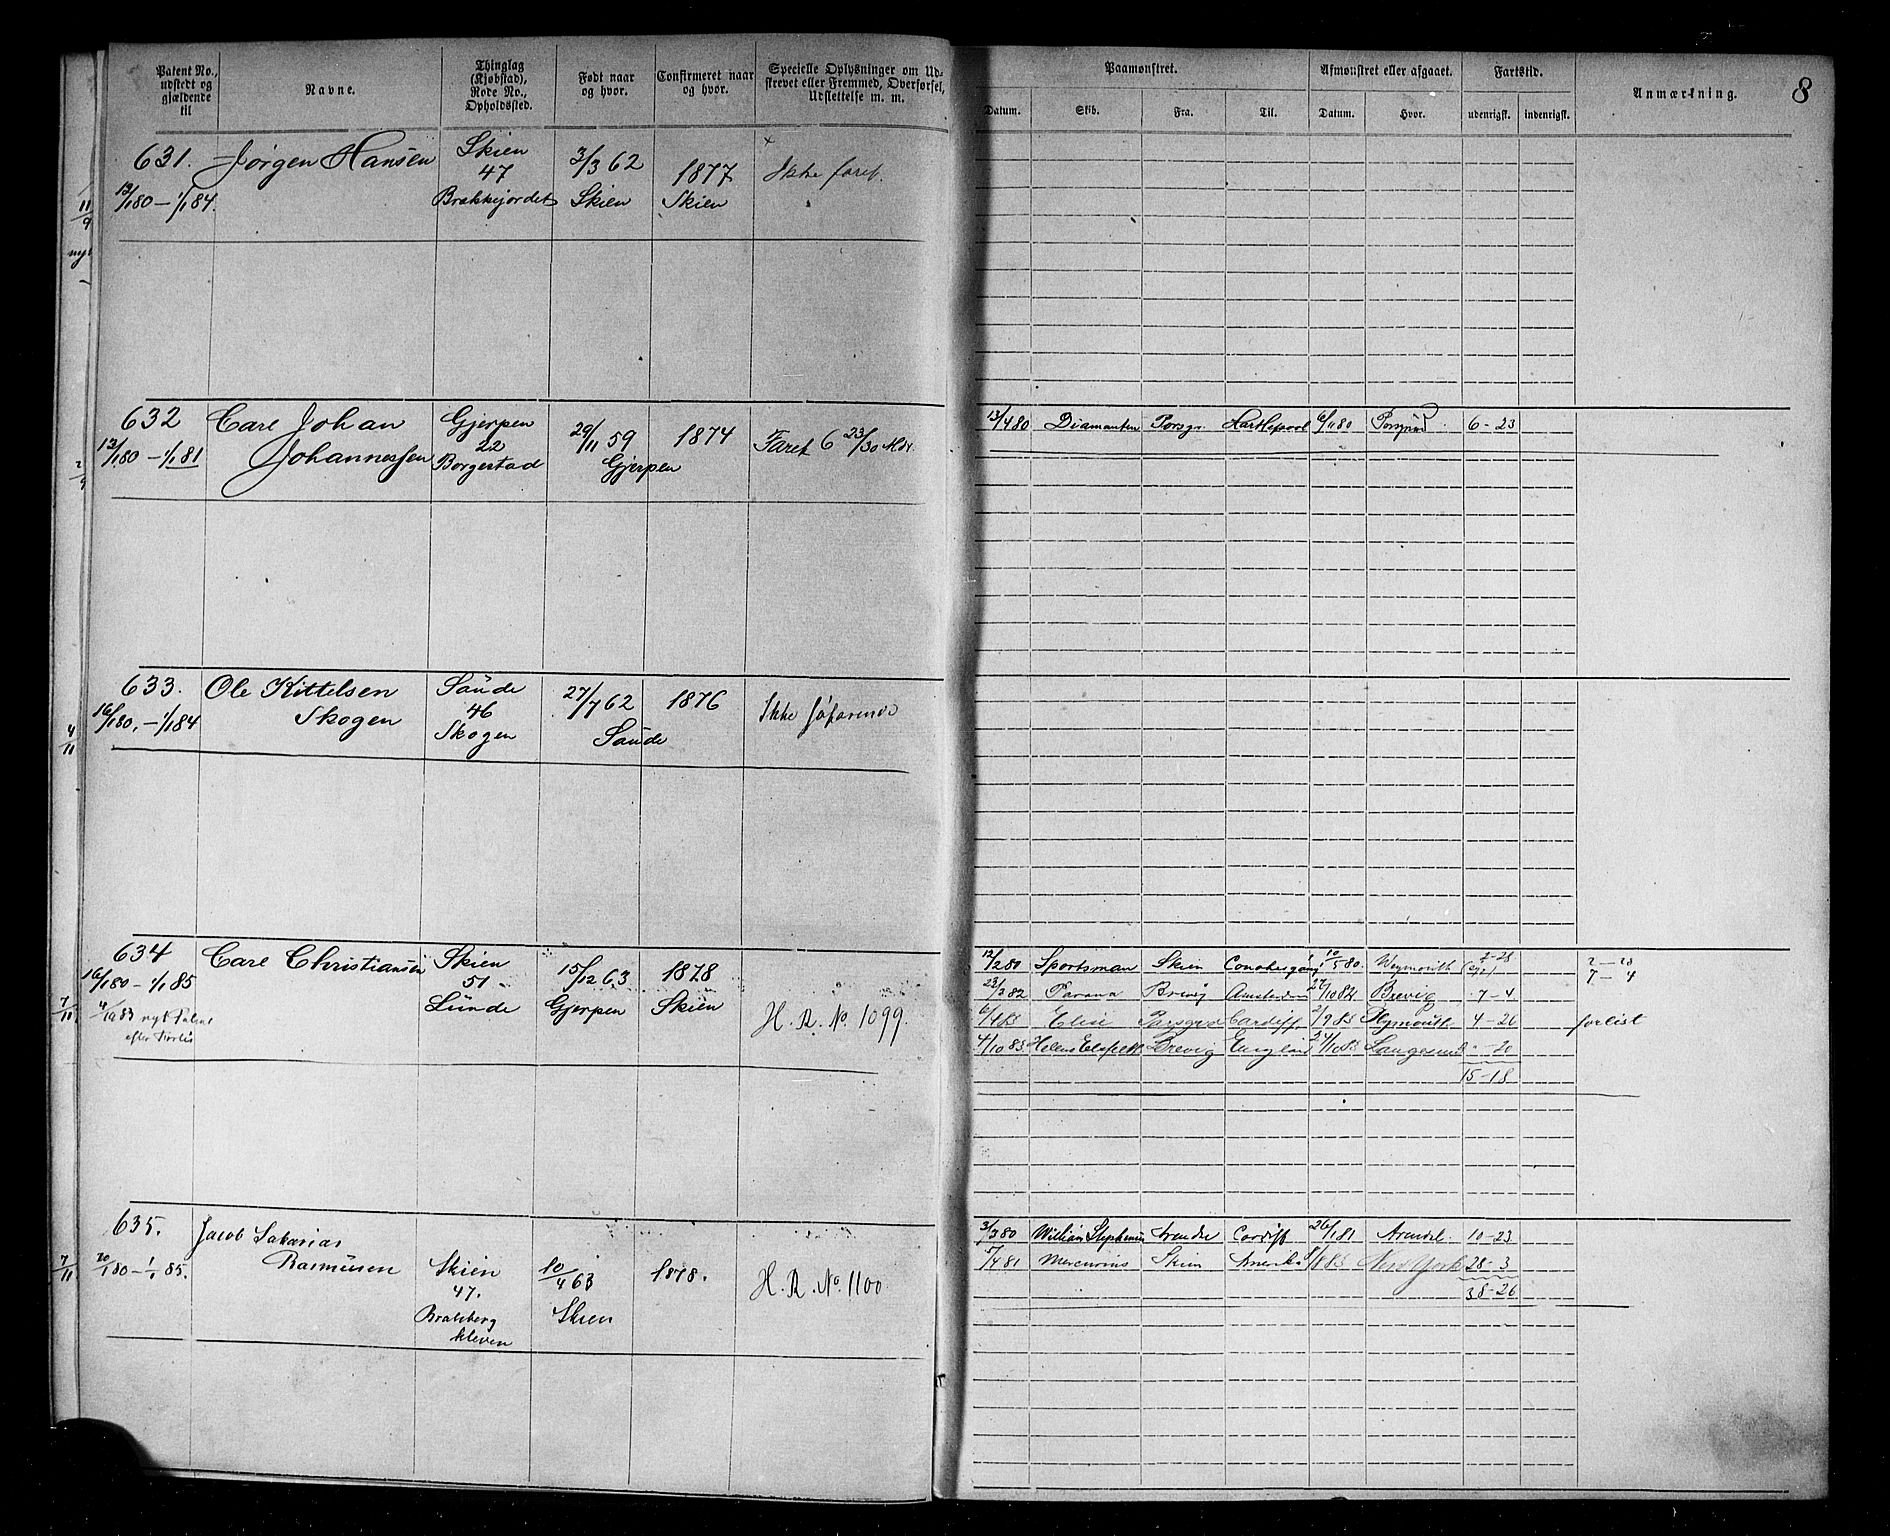 Patent No., udstedt og gjældende til
Navne.
Thinglag (Kjøbstad), Rode No., Opholdssted.
Født naar og hvor.
Confirmeret naar og hvor.
Specielle Oplysninger om Udskrevet eller Fremmed, Overførsel, Udslettelse m. m.
Paamønstret.
Afmønstret eller afgaaet.
Fartstid.
Anmærkning.
8
Datum. Skib. Fra. Til. Datum. Hvor. udenrigsk. indenrigsk.
631. Jörgen Hansen Skien 3/3 62 1877 Ikke faret.
13/1 80 – 1/1 84. 47
Brækkejordet Skien Skien
11/9
nyt
632 Carl Johan Gjerpen 29/11 59 1874 Faret 6 23/30 Mdr.
13/1 80 – 1/1 81 Johannessen 22
Borgestad Gjerpen
13/4 80 Diamanten Porsgr. Hartlepool 6/11 80 Porsgrund. 6–23
633. Ole Kittelsen Saude 27/7 62 1876 Ikke søfarende
16/1 80, – 1/1 84 Skogen 46
Skogen Saude
4/11
634 Carl Christiansen Skien 15/12 63 1878
16/1 80 – 1/1 85 51
7/11 4/10 83 nyt Patent Lunde Gjerpen Skien H. R. No. 1099.
efter Forlis
12/2 80 Sportsman Skien 10/5 80. Weymouth 2–28 2–28
7–4
23/3 82 Parana Brevig Amsterdam 27/10 82 Brevig 7–4
6/4 85 Elise Porsgrd Cardiff 2/9 85 Plymouth 4–26 forlist
4/10 85 Brevig England Langesund 20
15–18
635. Jacob Sakarias
7/11 20/1 80 – 1/1 85. Rasmusen Skien 10/4 63 1878. H. R. No. 1100
47.
Bratsberg Skien
kleven
3/3 80 William Stephensen Arendal Cardiff 26/1 81 Arendal 10–23
5/4 81 Mercurius Skien Amerika New York 28–3
38–26